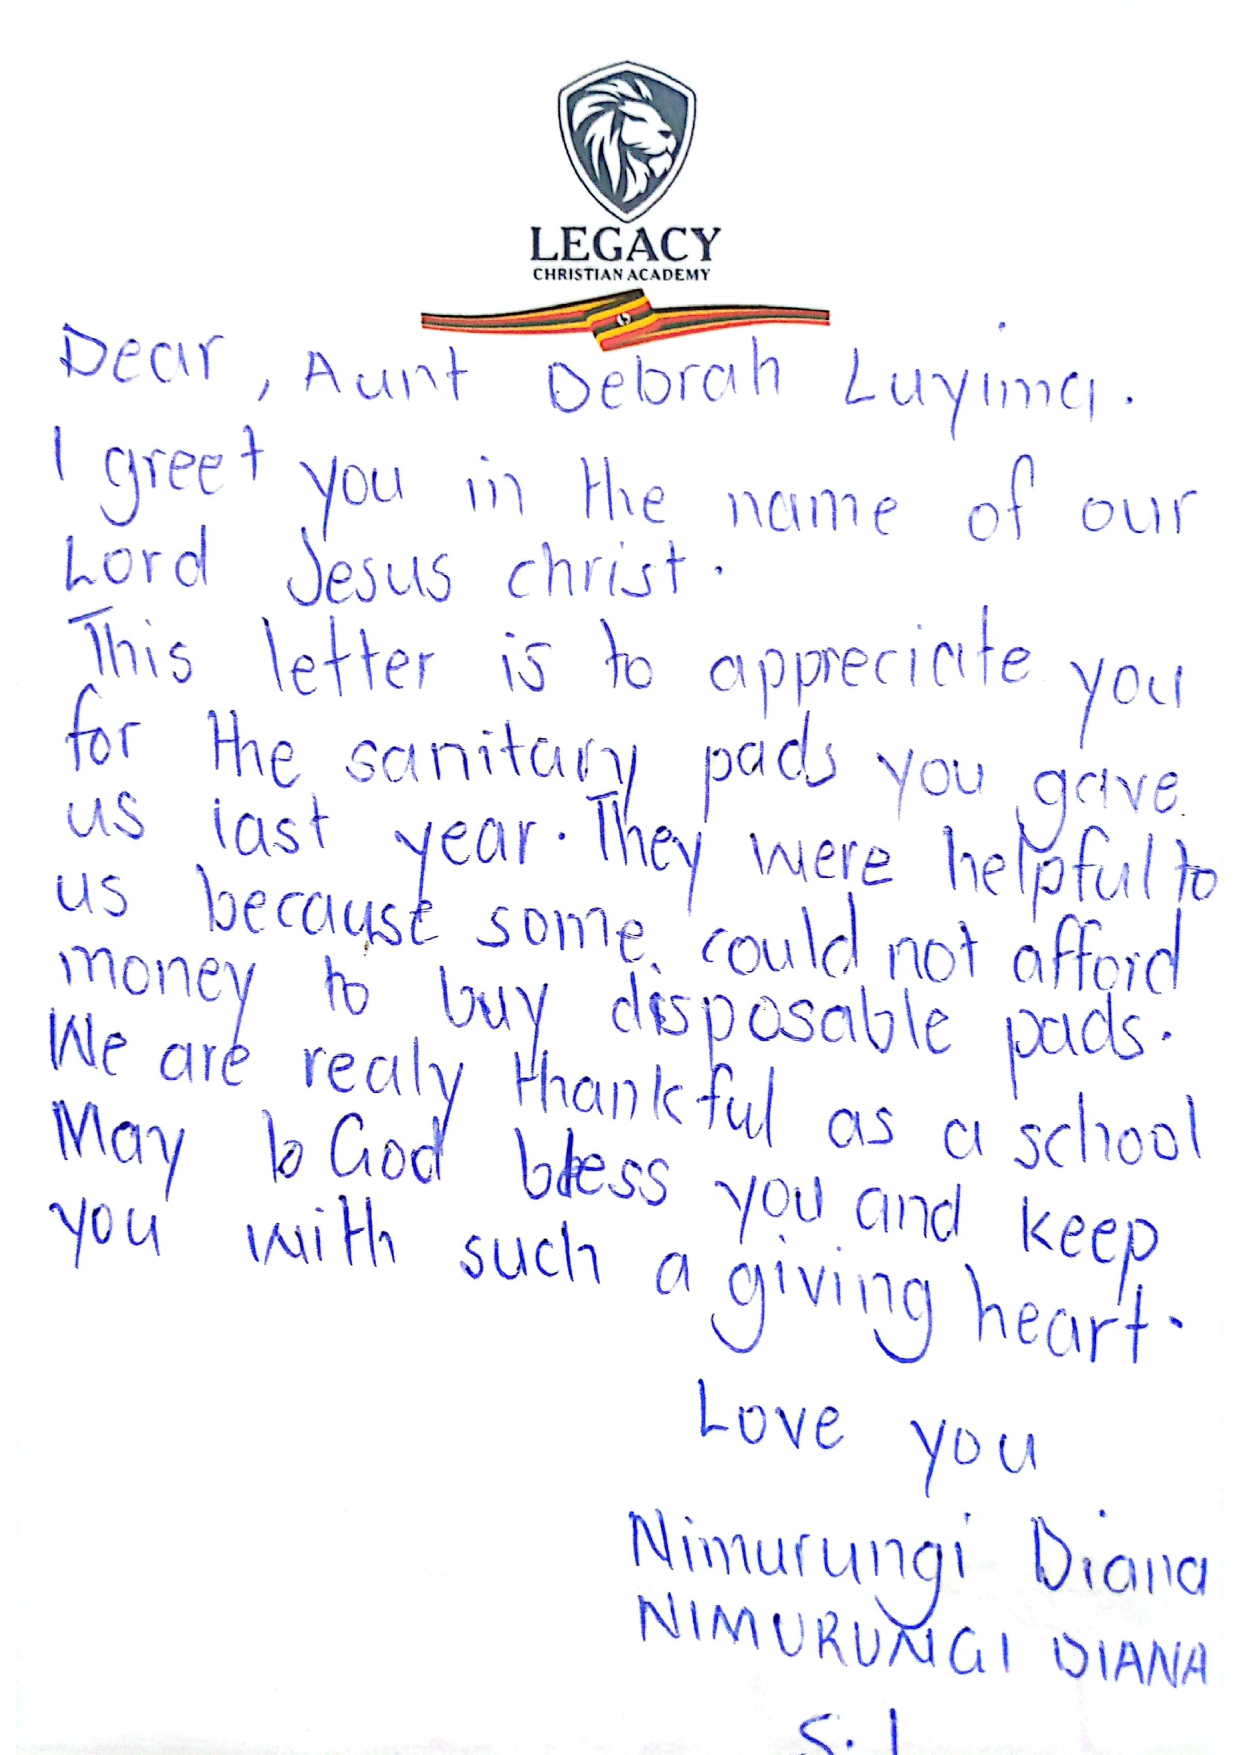 LEGACY
CHRISTIAN ACADEMY
Dear, Aunt Debrah Luyima.
I greet you in the name of our
Lord Jesus christ.
This letter is to appreciate you
for the sanitary pads you gave
us last year. They were helpful to
us because some could not afford
money to buy disposable pads.
We are realy thankful as a school
May b God bless you and keep
you with such a giving heart.
Love you
Nimurungi Diana
NIMURUNGI DIANA
S.1